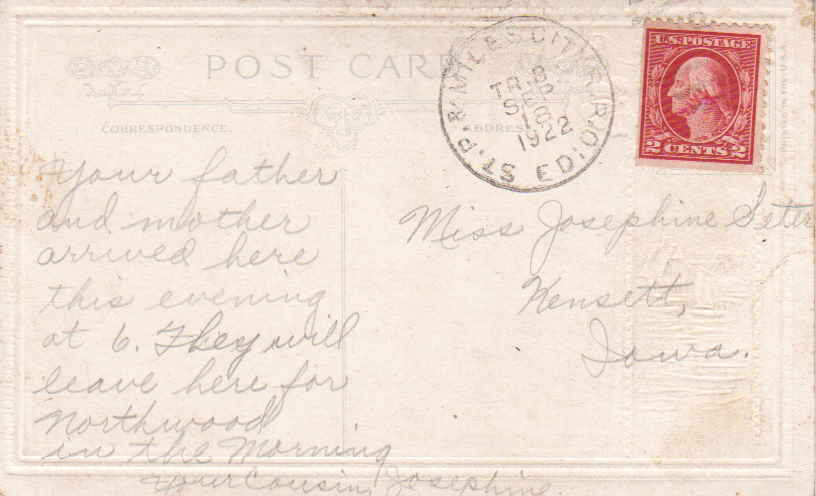 POST CARD
CORRESPONDENCE.
ADDRESS
ST. P. & MILES CITY R.P.O. E.D.
TR. 8
SEP
18
1922
U.S. POSTAGE
2 CENTS 2
Your father
and mother
arrived here
this evening
at 6. They will
leave here for
Northwood
in the Morning
Your Cousin, Josephine.
Miss Josephine Seter
Kensett,
Iowa.